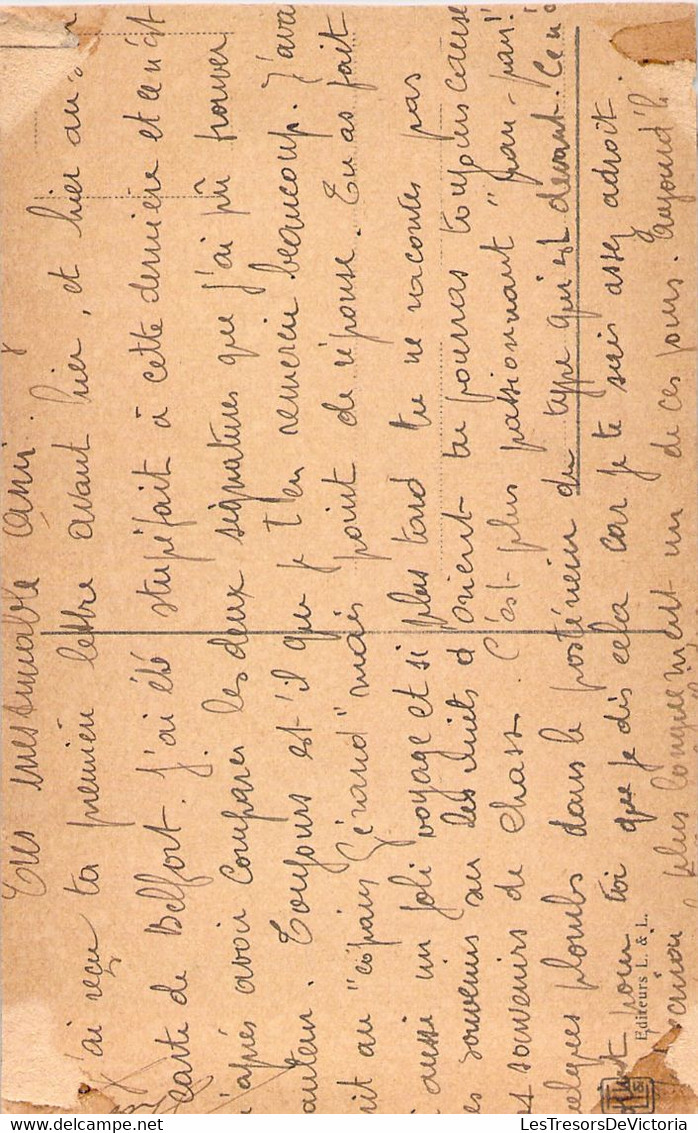 Très inestimable ami.
J'ai reçu ta première lettre avant hier, et hier au
carte de Belfort. J'ai été stupéfait à cette dernière et ce n'est
qu'après avoir comparer les deux signatures que j'ai pû trouver
l'auteur. Toujours est-il que je t'en remercie beaucoup. J'ava
écrit au "copain Gérand" mais point de réponse. Tu as fait
aussi un joli voyage et si plus tard tu ne racontes pas
des souvenirs sur les nuits d'orient tu pourras toujours causer
des souvenirs de chasse. C'est plus passionnant "pan-pan!"
quelques plombs dans le postérieur du type qui est devant. Ce n'
pour toi que je dis cela car je te sais assez adroit.
plus longuement un de ces jours. Aujourd'h
Editeurs L. & L.
LesTresorsDeVictoria.delcampe.net